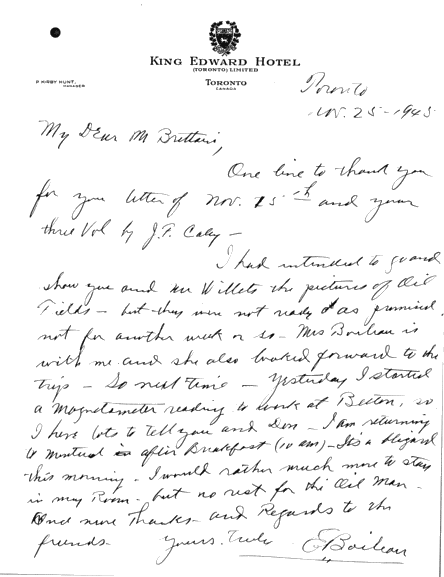 KING EDWARD HOTEL
(TORONTO) LIMITED
P. KIRBY HUNT,
MANAGER
TORONTO
CANADA
Toronto
Nov. 25 - 1945
My Dear M Brittain,
One line to thank you
for you letter of Nov. 15th and your
three Vol by J.P. Caley -
I had intended to go and
show you and Mr Willets the pictures of Oil
Fields - but they were not ready as promised
not for another week or so - Mrs Boileau is
with me and she also looked forward to the
trip - So next time - Yesterday I started
a Magnetometer reading to work at Beeton, so
I have lots to tell you and Don - I am returning
to Montreal after Breakfast (10 am) - It's a blizard
this morning. I would rather much more to stay
in my Room - but no rest for the Oil Man -
Once more Thanks - and Regards to the
friends.
Yours Truly
E Boileau